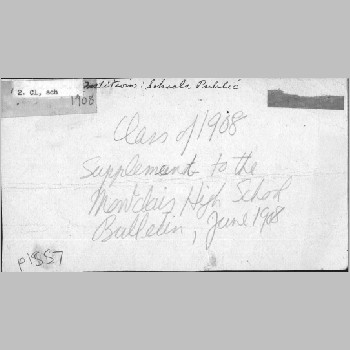 Z. Cl, sch
Institutions: Schools Public
1908
Class of 1908
Supplement to the
Montclair High School
Bulletin, June 1908
p1557